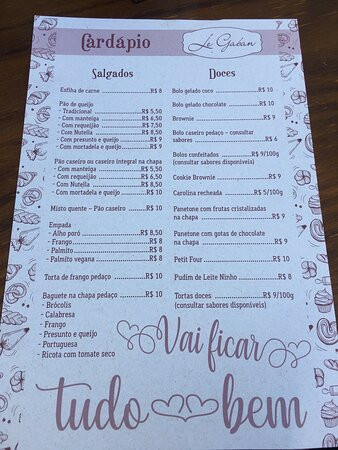 Cardápio
Le Gaban
Salgados
Esfiha de carne ................R$ 8
Pão de queijo
- Tradicional ....................R$ 5,50
- Com manteiga ..............R$ 6,50
- Com requeijão ..............R$ 7,50
- Com Nutella .................R$ 8,50
- Com presunto e queijo ....R$ 9
- Com mortadela e queijo ...R$ 9
Pão caseiro ou caseiro integral na chapa
- Com manteiga ..............R$ 5,50
- Com requeijão ..............R$ 6,50
- Com Nutella .................R$ 8,50
- Com mortadela e queijo .....R$ 10
Misto quente – Pão caseiro ....R$ 10
Empada
- Alho poró ......................R$ 8,50
- Frango ..........................R$ 8
- Palmito .........................R$ 8
- Palmito vegana .............R$ 8
Torta de frango pedaço .........R$ 10
Baguete na chapa pedaço ....R$ 10
- Brócolis
- Calabresa
- Frango
- Presunto e queijo
- Portuguesa
- Ricota com tomate seco
Doces
Bolo gelado coco ...................R$ 10
Bolo gelado chocolate ............R$ 10
Brownie ...............................R$ 9
Bolo caseiro pedaço – consultar
sabores ...............................R$ 6
Bolos confeitados ..........R$ 9/100g
(consultar sabores disponíveis)
Cookie Brownie ....................R$ 9
Carolina recheada .........R$ 5/100g
Panetone com frutas cristalizadas
na chapa .............................R$ 9
Panetone com gotas de chocolate
na chapa .............................R$ 9
Petit Four ............................R$ 10
Pudim de Leite Ninho ............R$ 8
Tortas doces ..................R$ 9/100g
(consultar sabores disponíveis)
Vai ficar
tudo bem